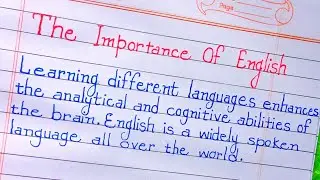 The Importance Of English
Learning different languages enhances
the analytical and cognitive abilities of
the brain. English is a widely spoken
language all over the world.